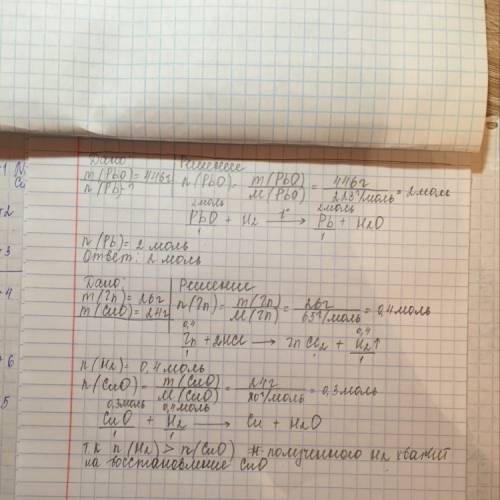 Дано
Решение
m(PbO) = 446г
n(Pb)-?
n(PbO) = m(PbO) / M(PbO) = 446г / 223г/моль = 2 моль
2моль 2моль
PbO + H2 —t°→ Pb + H2O
1 1
n(Pb) = 2 моль
Ответ: 2 моль
Дано:
Решение
m(Zn) = 26г
m(CuO) = 24г
n(Zn) = m(Zn) / M(Zn) = 26г / 65г/моль = 0,4моль
0,4 0,4
Zn + 2HCl → ZnCl2 + H2↑
1 1
n(H2) = 0,4 моль
n(CuO) = m(CuO) / M(CuO) = 24г / 80г/моль = 0,3моль
0,3моль 0,4моль
CuO + H2 → Cu + H2O
1 1
т.к n(H2) > n(CuO) полученного H2 хватит
на восстановление CuO